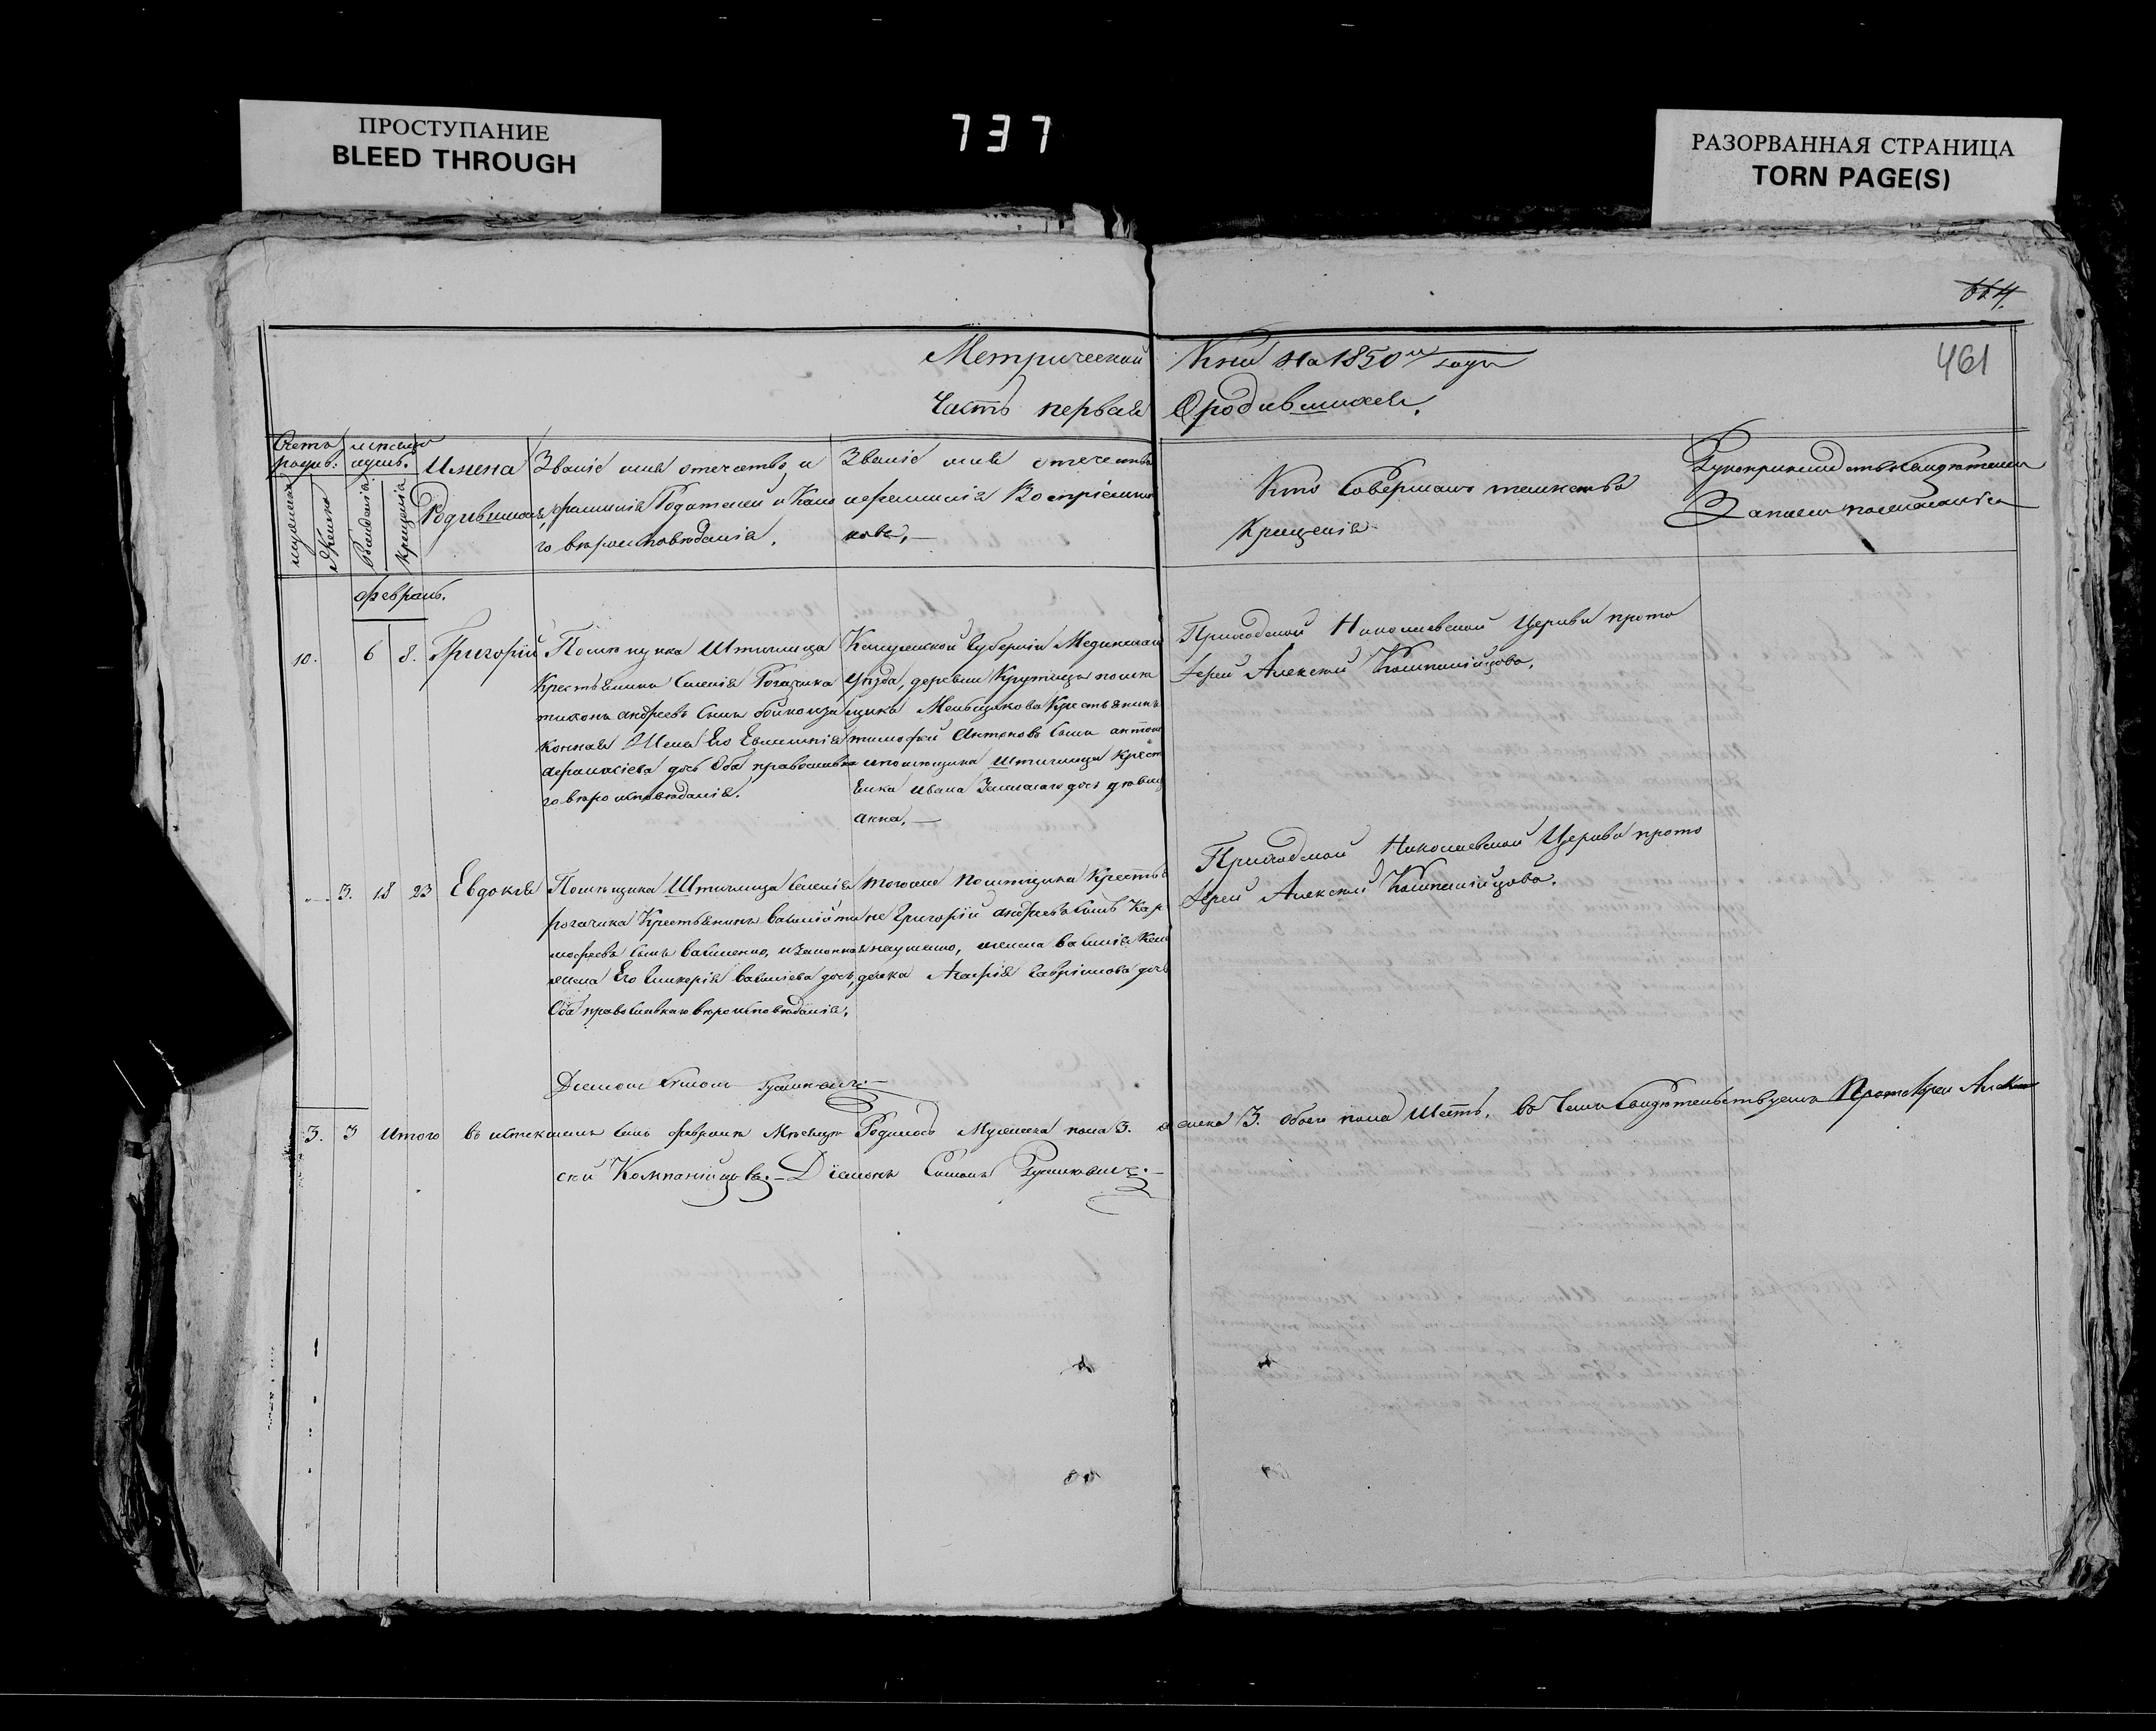 ПРОСТУПАНИЕ
BLEED THROUGH
737
РАЗОРВАННАЯ СТРАНИЦА
TORN PAGE(S)
664.
461
Метрической Книги на 1850й годъ
Часть первая О родившихся.
Счетъ родив.
Мѣсяцъ и день.
Имена Родившихся
Званіе имя отечество, и
фамилія Родителей и Како
го вѣроисповѣданія.
Званіе имя отечество
и фамилія Воспріемни
ковъ.
Кто Совершалъ таинство
Крещенія
Рукоприкладство Свидѣтелей
Записи
мужеска
женска
Рожденія
Крещенія
февраль.
10. 6 8. Григорій
Помѣщика Штиглица
Крестьянинъ Селенія Рогачика
тихонъ андреевъ сынъ
Жена Его
афанасіева дочь Оба православна
го вѣроисповѣданія.
Калужской Губерніи Медынскаго
уѣзда, деревни Крутицы помѣ
щика Меньщикова Крестьянинъ
тимофей Антоновъ сынъ антоно
ипомѣщика Штиглица Крест
Ивана дочь дѣвица
анна.
Приходской Николаевской Церкви прото
Іерей Алексѣй Компанійцовъ.
3. 18 23 Евдокія
Помѣщика Штиглица Селенія
рогачика Крестьянинъ Василій ти
мофеевъ сынъ Василенко, и Законная
жена Его Гликерія Васильева дочь,
Оба православнаго вѣроисповѣданія.
тогоже помѣщика Крестья
не Григорій андреевъ сынъ Кар
наушенко, жена
Агафія Гавріилова дочь
Приходской Николаевской Церкви прото
Іерей Алексѣй Компанійцовъ.
Діаконъ Симонъ
3. 3 Итого въ истекшемъ семъ февралѣ Мѣсяцѣ Родилось Мужеска пола 3. женска 3. обоего пола Шесть. въ Чемъ Свидѣтельствуемъ Протоіерей Алек
сѣй Компанійцовъ. Діаконъ Симонъ